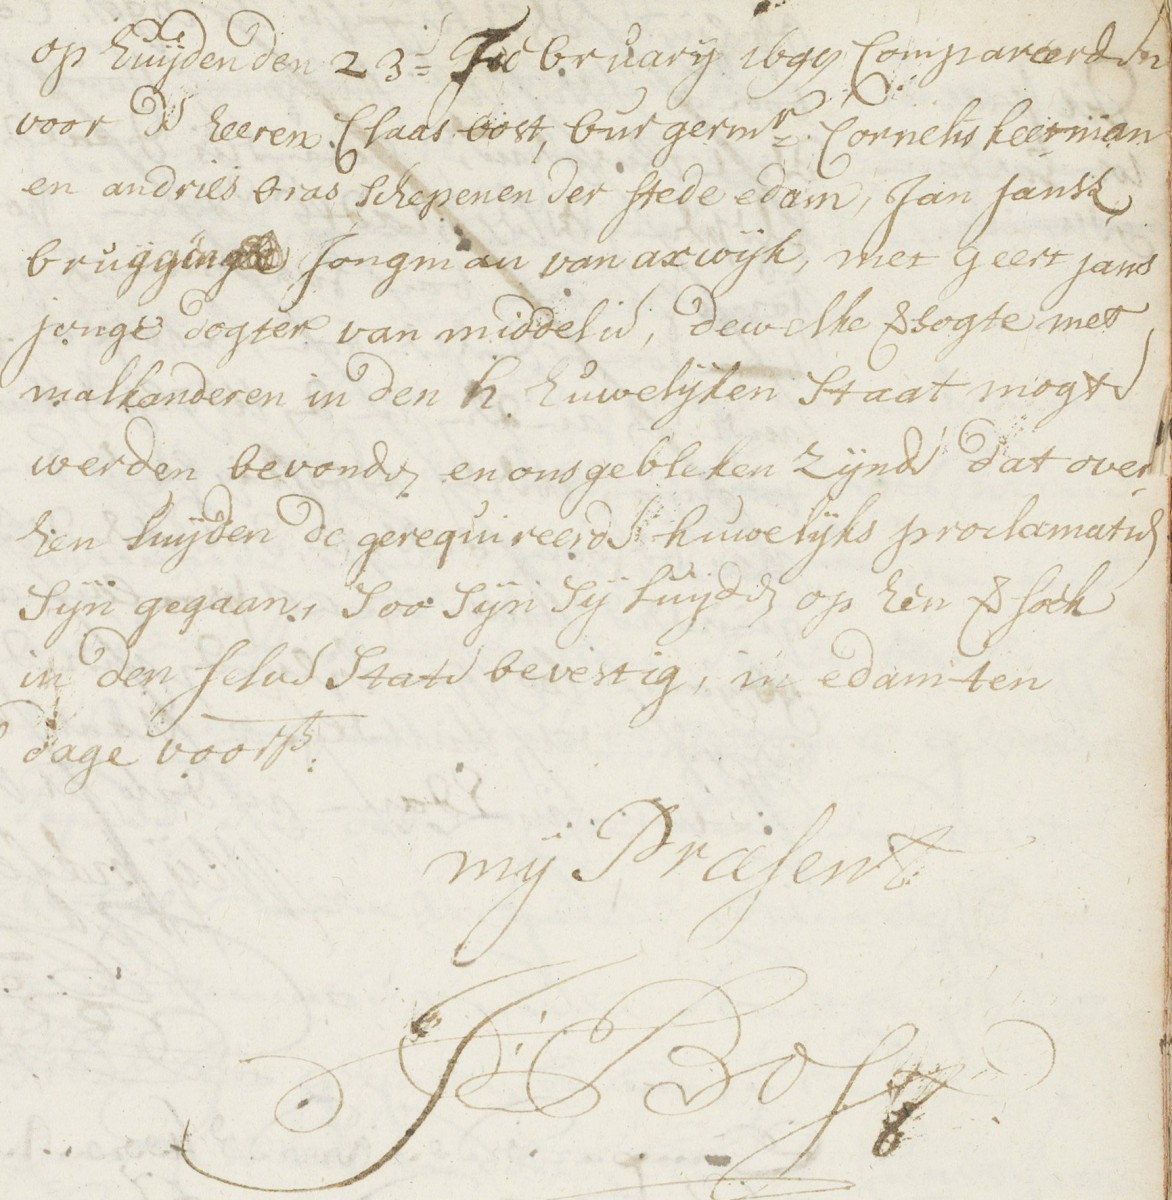 op huijden den 23=: February 1699 Compareerden
voor d' heeren Claas bost, burgermr= Cornelis keetman
en andries bras Schepenen der stede edam, Jan Jansz
brugginge Jongman van axwijk, met geert jans
jonge dogter van middelie, dewelke versogte met
malkanderen in den h. huwelijken Staat mogte
werden bevonde, en ons gebleken zijnde dat over
hen luijden de gerequireerde huwelijks proclamatie
Sijn gegaan, Soo Sijn Sij luijde op hen versoek
in den selve State bevestig, in edam ten
dage voorsz.
mij Præsent
Bost